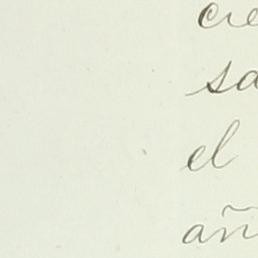 cre
sa
el
añ